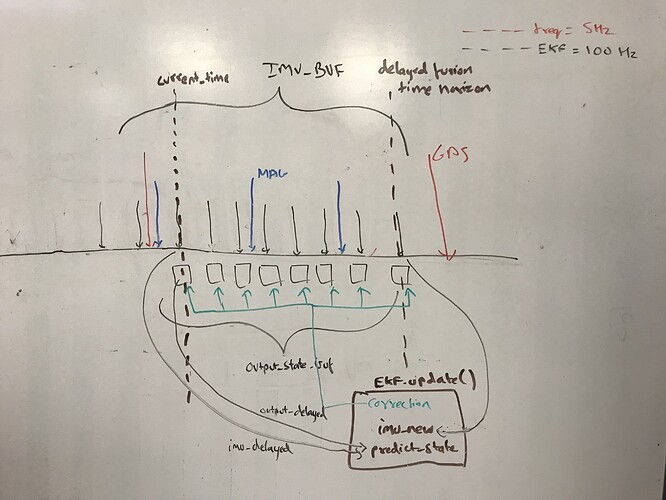 freq = 5Hz
EKF = 100 Hz
current_time
IMU_BUF
delayed fusion
time horizon
MAG
GPS
output_state_buf
EKF.update()
output_delayed
correction
imu_new
imu_delayed
predict_state